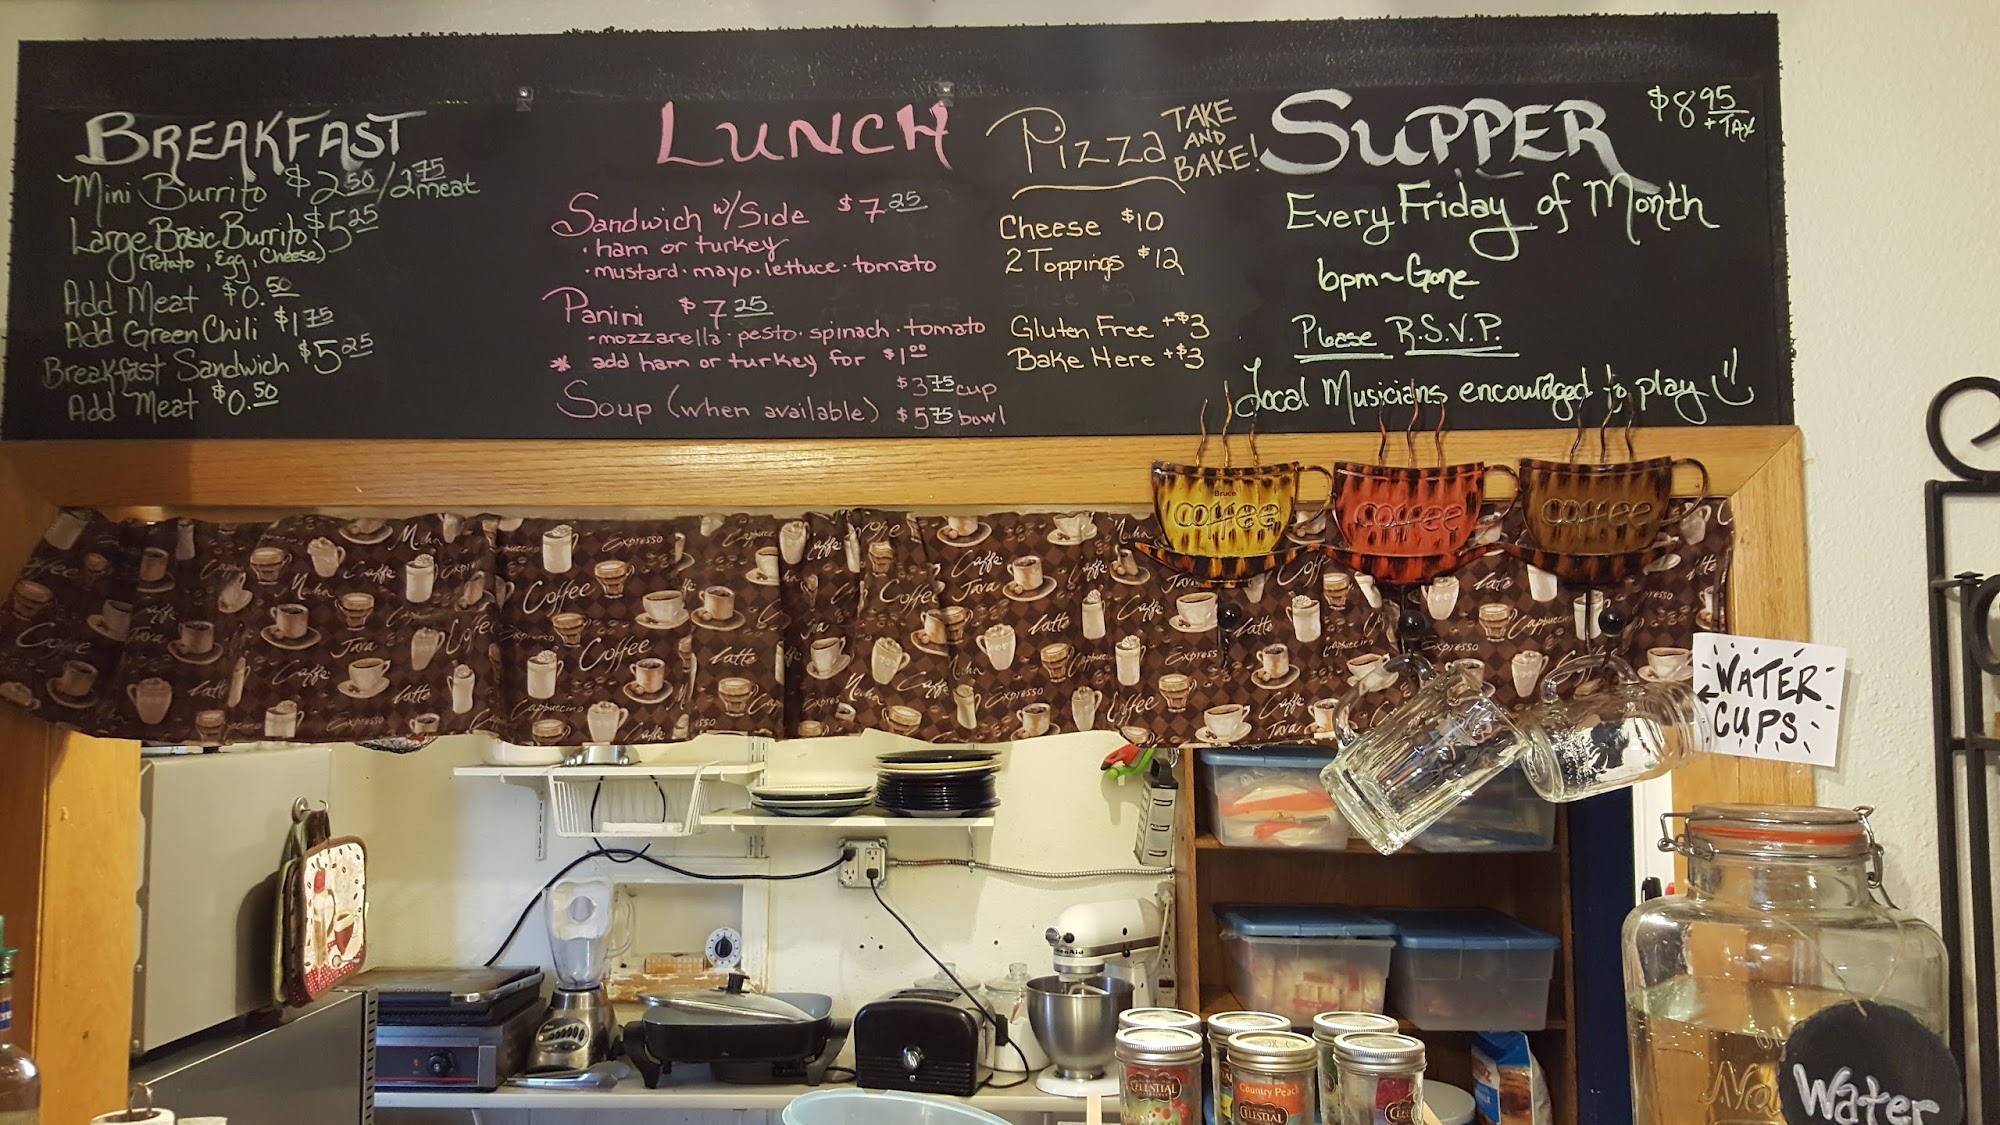 BREAKFAST
Mini Burrito $2.50/2.75 meat
Large Basic Burrito $5.25
(Potato, Egg, Cheese)
Add Meat $0.50
Add Green Chili $1.75
Breakfast Sandwich $5.25
Add Meat $0.50
LUNCH
Sandwich w/Side $7.25
· ham or turkey
· mustard · mayo · lettuce · tomato
Panini $7.25
- mozzarella · pesto · spinach · tomato
* add ham or turkey for $1.00
Soup (when available) $3.75 cup
$5.75 bowl
Pizza TAKE AND BAKE!
Cheese $10
2 Toppings $12
Slice $3
Gluten Free +$3
Bake Here +$3
SUPPER $8.95 + TAX
Every Friday of Month
6pm~Gone
Please R.S.V.P.
Local Musicians encouraged to play
Bruce
coffee
coffee
coffee
Coffee
Expresso
Caffe
Java
latte
Mocha
Cappuccino
WATER
CUPS
KitchenAid
CELESTIAL
Country Peach
CELESTIAL
Water